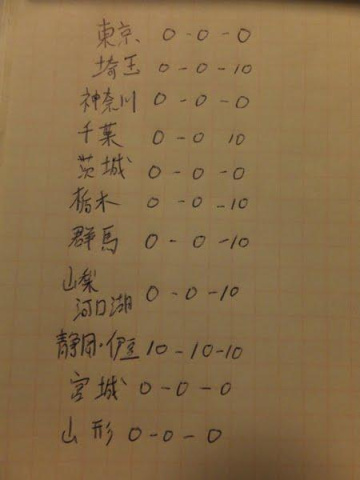 東京 0-0-0
埼玉 0-0-10
神奈川 0-0-0
千葉 0-0 10
茨城 0-0-0
栃木 0-0-10
群馬 0-0-10
山梨
河口湖 0-0-10
静岡・伊豆 10-10-10
宮城 0-0-0
山形 0-0-0